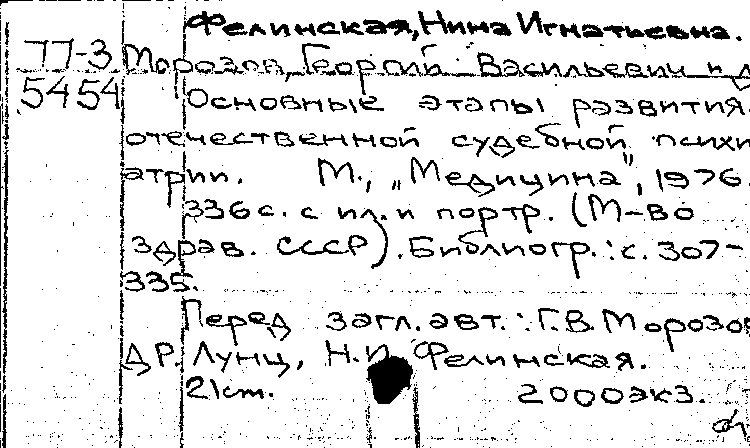 Фелинская, Нина Игнатьевна.
77-3 Морозов, Георгий Васильевич и д
5454 Основные этапы развития
отечественной судебной психи
атрии. М., „Медицина", 1976.
336 с. с ил. и портр. (М-во
здрав. СССР). Библиогр.: с. 307-
335.
Перед загл. авт.: Г.В. Морозов
ДР. Лунц, Н.И. Фелинская.
21 cm. 2000 экз.